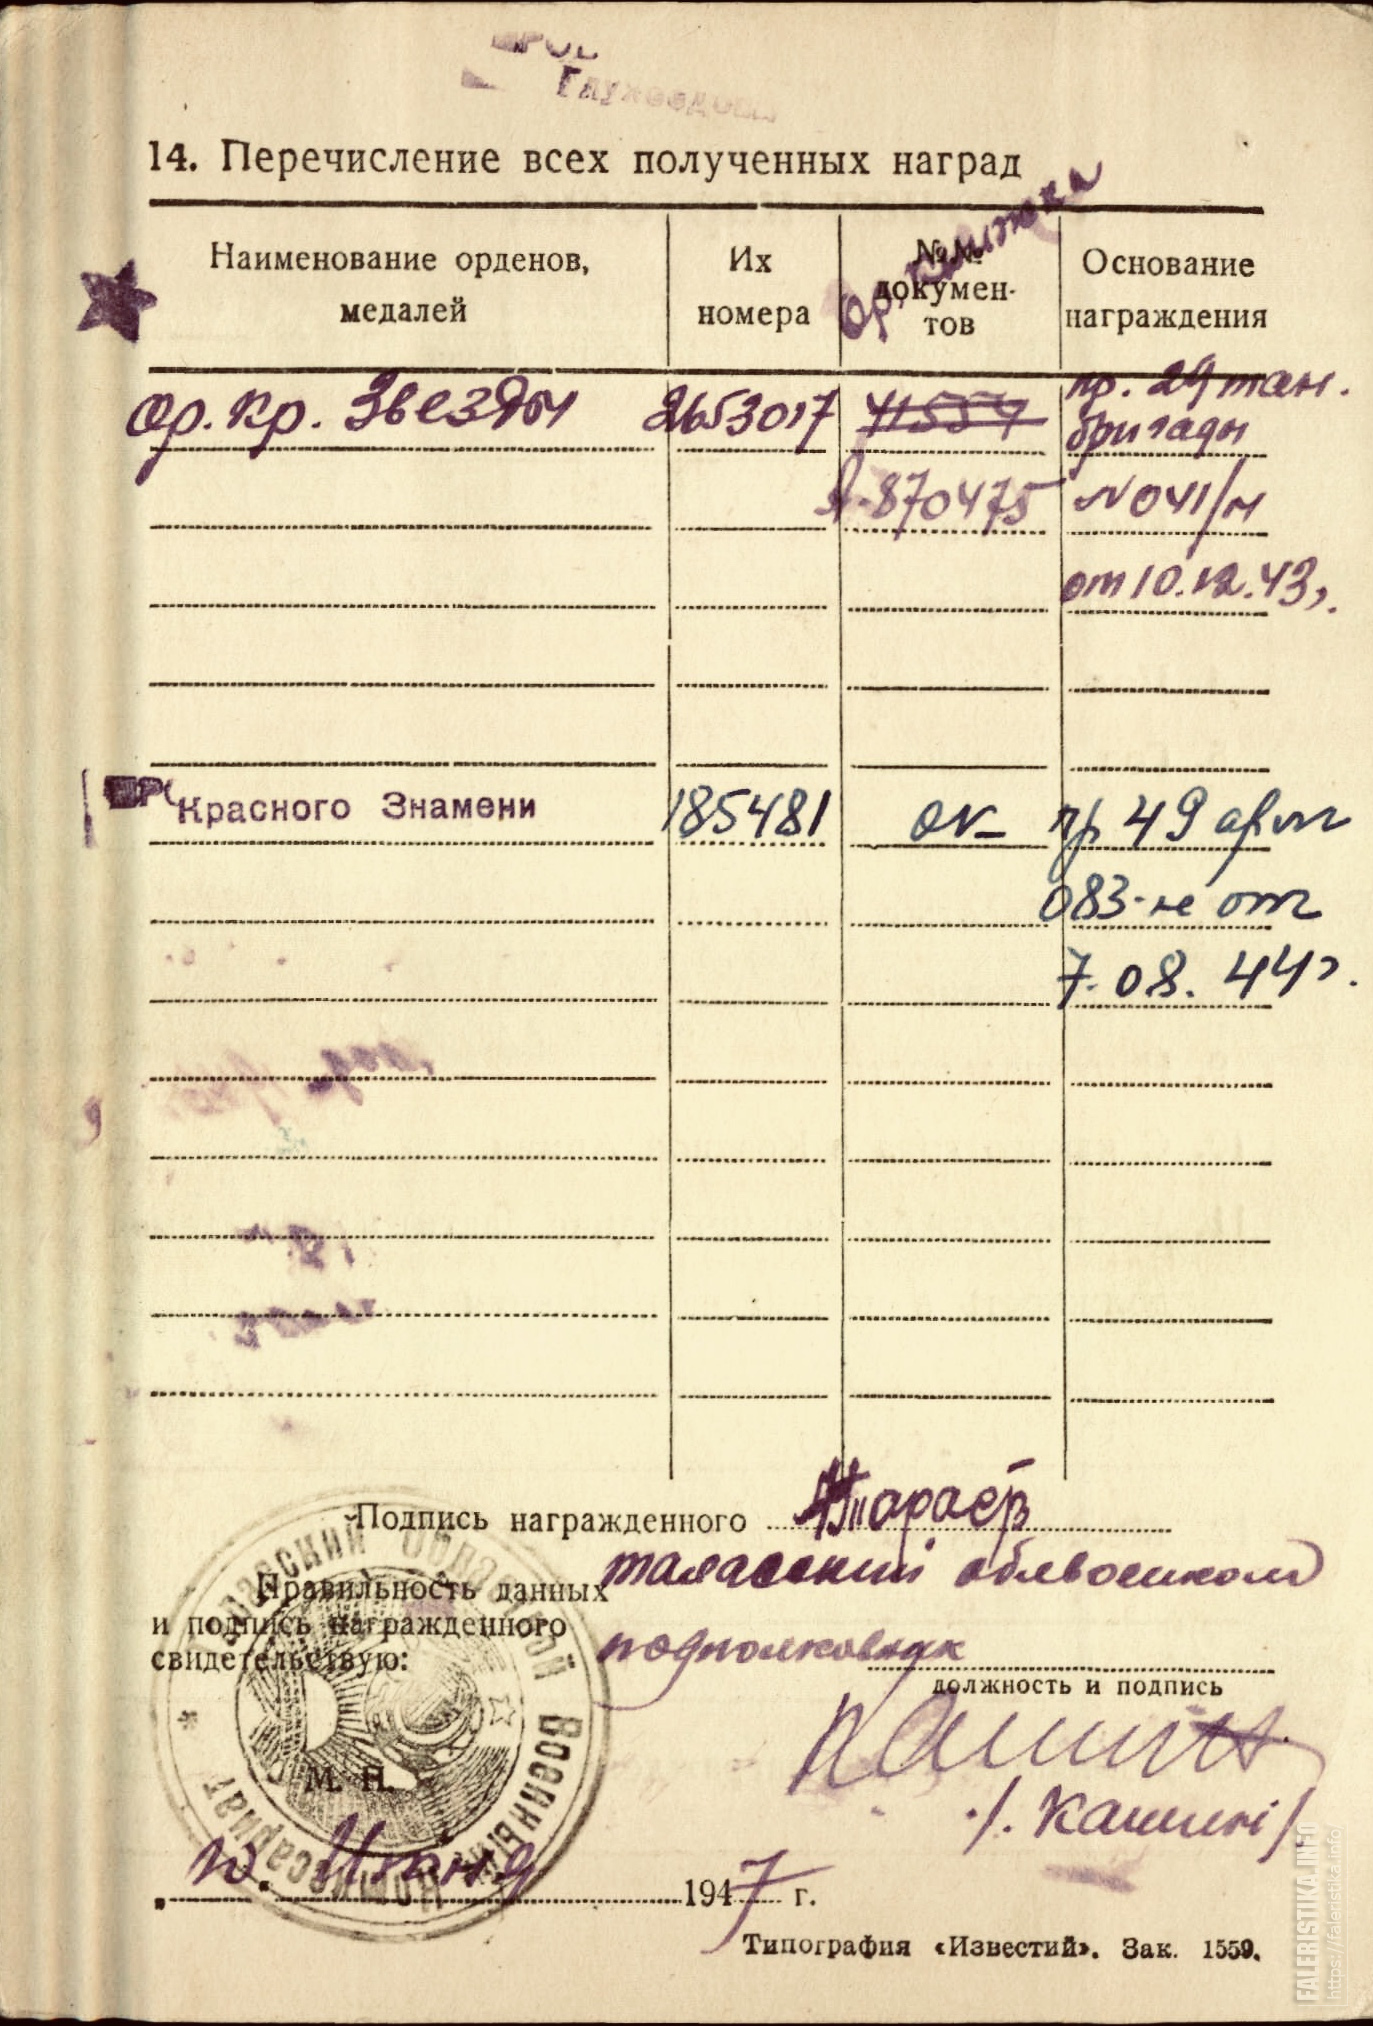 14. Перечисление всех полученных наград
Наименование орденов, медалей
Их номера
№№ докумен-
тов
Основание награждения
Ор. книжка
ор. кр. Звезды 2653017 41554 пр. 29 тан.
бригады
А-870475 № 041/н
от 10.12.43г.
Красного Знамени 185481 ок- пр 49 арм
083-не от
7.08.44г.
Подпись награжденного
Правильность данных таласский облвоенком
и подпись награжденного
свидетельствую: подполковник
должность и подпись
/. Кашин /
М. П.
1947 г.
Типография «Известий». Зак. 1559.
Таласский Областной Военный Комиссариат
FALERISTIKA.INFO
https://faleristika.info/